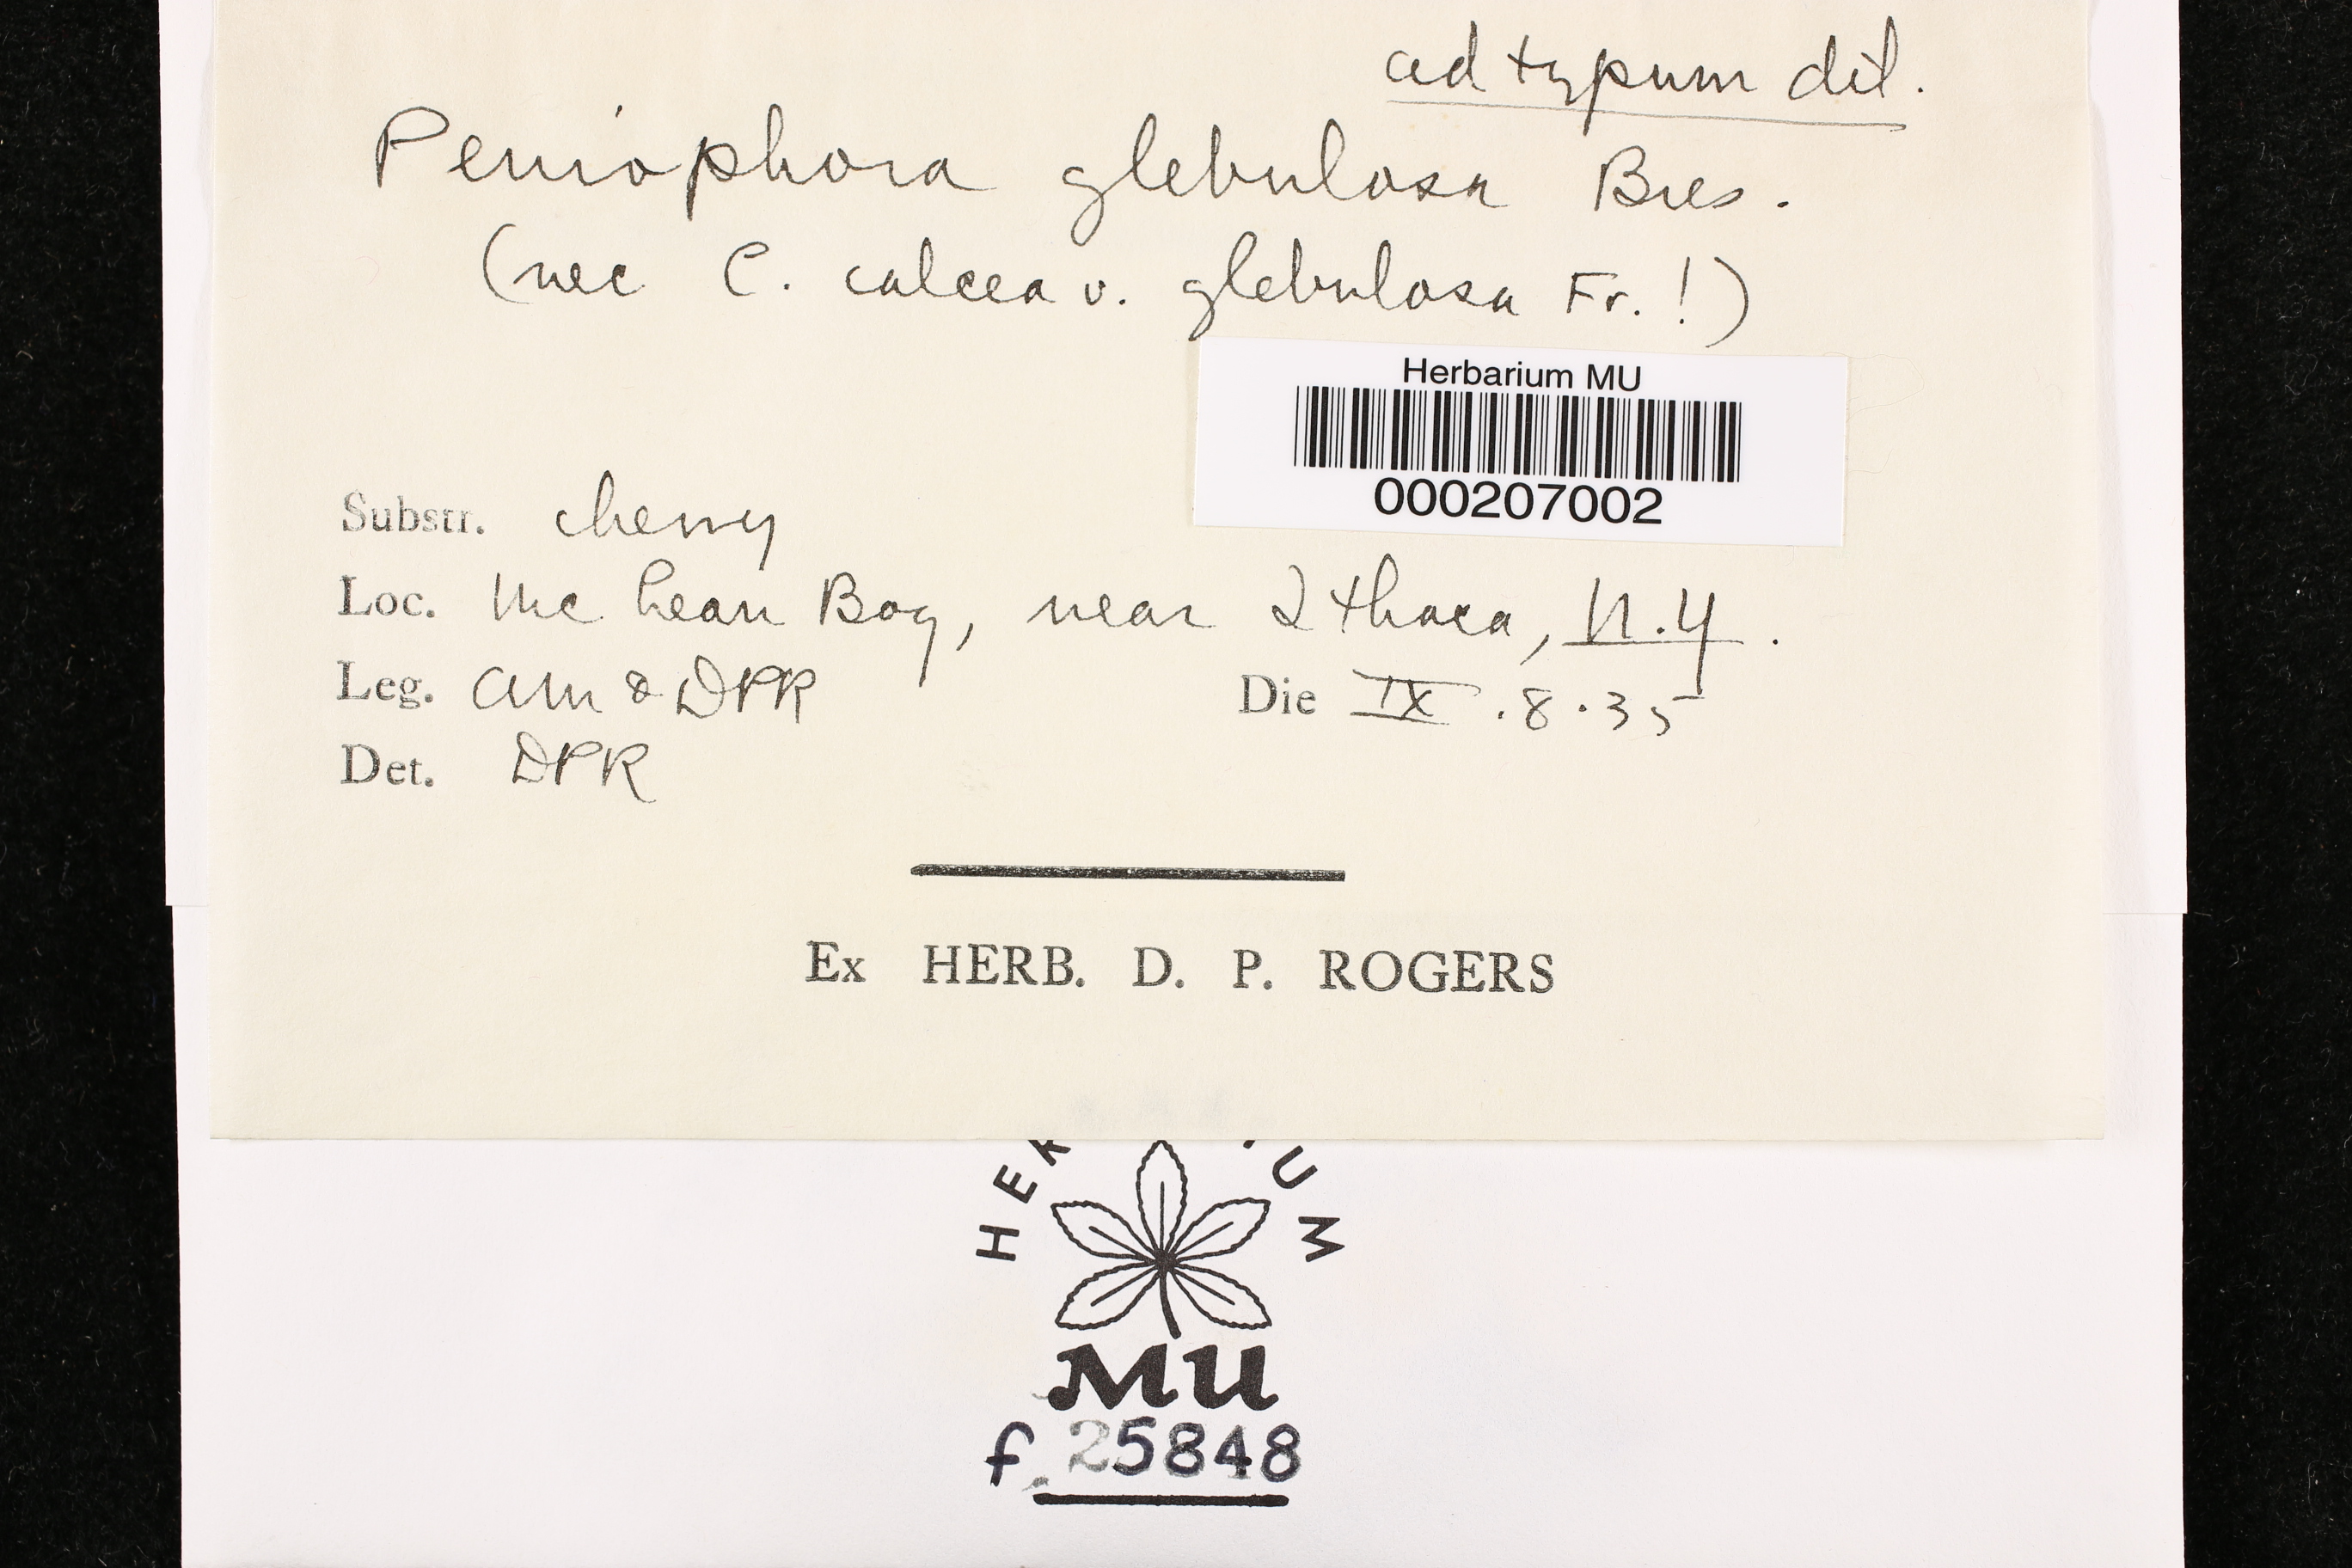 ad typum det.
Peniophora glebulosa Bres.
(nec C. calcea v. glebulosa Fr.!)
Herbarium MU
000207002
Substr. cherry
Loc. McLean Bog, near Ithaca, N.Y.
Leg. AMR & DPR Die IX.8.35
Det. DPR
Ex HERB. D. P. ROGERS
HER UM
MU
f. 25848